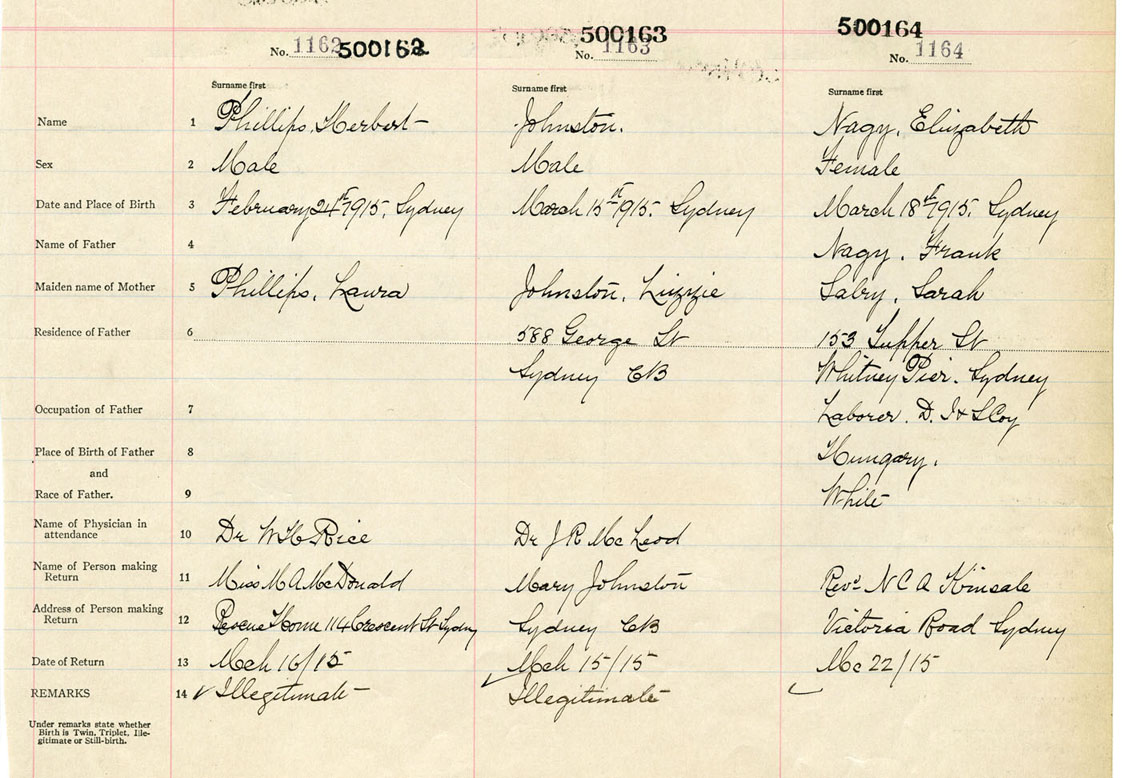 500162 500163 500164
No. 1162 No. 1163 No. 1164
Surname first Surname first Surname first
Name 1 Phillips, Herbert Johnston. Nagy, Elizabeth
Sex 2 Male Male Female
Date and Place of Birth 3 February 24th 1915, Sydney March 15th 1915. Sydney March 18th 1915, Sydney
Name of Father 4 Nagy, Frank
Maiden name of Mother 5 Phillips, Laura Johnston, Lizzie Sabry, Sarah
Residence of Father 6 588 George St 153 Tupper St
Sydney CB Whitney Pier. Sydney
Occupation of Father 7 Laborer. D. I & S Coy
Place of Birth of Father 8 Hungary.
and
Race of Father. 9 White
Name of Physician in
attendance 10 Dr W H Rice Dr J R McLeod
Name of Person making
Return 11 Miss M A McDonald Mary Johnston Revd N C A
Address of Person making
Return 12 Rescue Home 114 Crescent St Sydney Sydney CB Victoria Road Sydney
Date of Return 13 Mch 16/15 Mch 15/15 Mc 22/15
REMARKS 14 ✓ Illegitimate ✓ Illegitimate ✓
Under remarks state whether
Birth is Twin, Triplet, Ille-
gitimate or Still-birth.